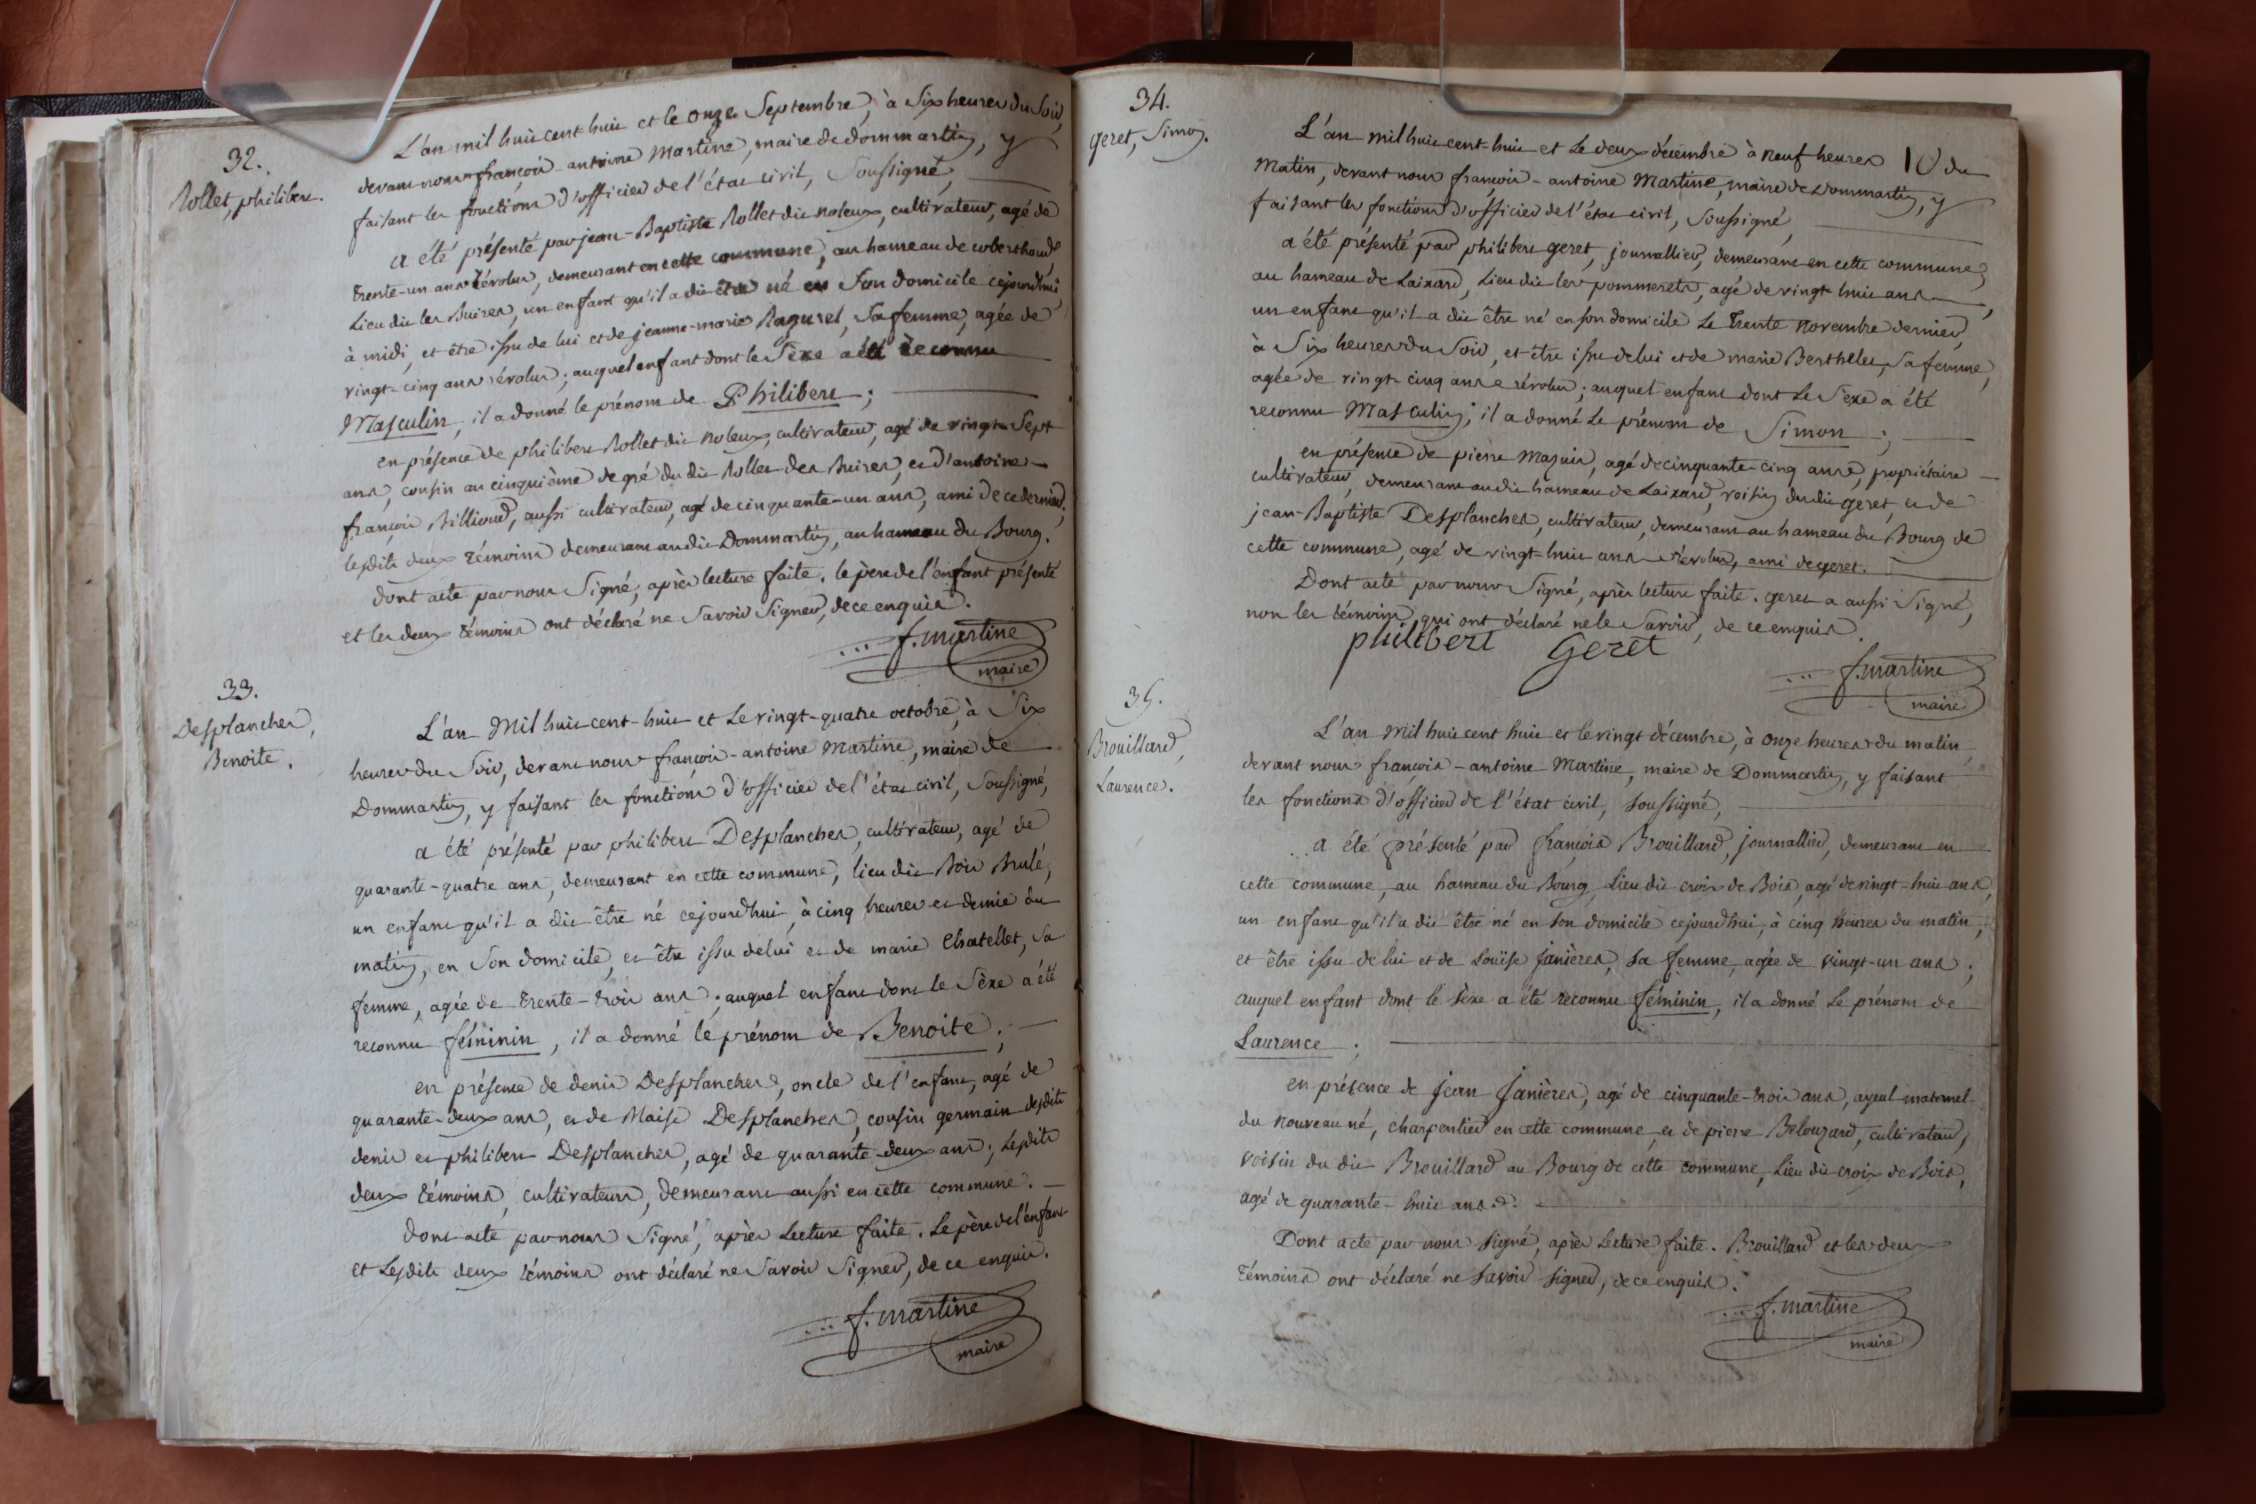 32.
Rollet, philibert.
L'an mil huit cent huit et le onze Septembre, à Six heures du Soir,
devant nous françois-antoine Martine, maire de dommartin, y
faisant les fonctions d'officier de l'état civil, Soussigné,
a été présenté par jean-Baptiste Rollet dit noleux, cultivateur, agé de
trente-un ans révolus, demeurant en cette commune, au hameau de
Lieu dit les Buires, un enfant qu'il a dit être né en Son domicile cejourd'hui
à midi, et être issu de lui et de jeanne-marie Raguret, Sa femme, agée de
vingt-cinq ans révolus; auquel enfant dont le Sexe a été reconnu
Masculin, il a donné le prénom de Philibert;
en présence de philibert Rollet dit noleux, cultivateur, agé de vingt-Sept
ans, cousin au cinquième degré du dit Rollet des Buires, et d'antoine-
françois Billioud, aussi cultivateur, agé de cinquante-un ans, ami de ce dernier;
lesdits deux témoins demeurant audit Dommartin, au hameau du Bourg.
dont acte par nous Signé, après lecture faite. le père de l'enfant présenté
et les deux témoins ont déclaré ne Savoir Signer, de ce enquis.
f. martine
maire
33.
Desplanches,
Benoite.
L'an Mil huit cent-huit et Le vingt-quatre octobre, à Six
heures du Soir, devant nous françois-antoine Martine, maire de
Dommartin, y faisant les fonctions d'officier de l'état civil, Soussigné,
a été présenté par philibert Desplanches, cultivateur, agé de
quarante-quatre ans, demeurant en cette commune, lieu dit Bois Brulé,
un enfant qu'il a dit être né cejourd'hui, à cinq heures et demie du
matin, en Son domicile, et être issu de lui et de marie Chatellet, Sa
femme, agée de trente-trois ans; auquel enfant dont le Sexe a été
reconnu féminin, il a donné le prénom de Benoite;
en présence de denis Desplanches, oncle de l'enfant, agé de
quarante-deux ans, et de Blaise Desplanches, cousin germain desdits
denis et philibert Desplanches, agé de quarante-deux ans; lesdits
deux témoins, cultivateurs, demeurant aussi en cette commune.
dont acte par nous Signé, après Lecture faite. Le père de l'enfant
et Lesdits deux témoins ont déclaré ne Savoir Signer, de ce enquis.
f. martine
maire
34.
geret, Simon.
10
L'an mil huit cent-huit et Le deux décembre à neuf heures du
Matin, devant nous françois-antoine Martine, maire de Dommartin, y
faisant les fonctions d'officier de l'état civil, Soussigné,
a été présenté par philibert geret, journallier, demeurant en cette commune,
au hameau de Laixard, Lieu dit les pommerets, agé de vingt-huit ans,
un enfant qu'il a dit être né en son domicile Le trente novembre dernier,
à Six heures du Soir, et être issu de lui et de marie Berthelet, Sa femme,
agée de vingt-cinq ans révolus; auquel enfant dont Le Sexe a été
reconnu Masculin; il a donné Le prénom de Simon;
en présence de pierre Mazuir, agé de cinquante-cinq ans, propriétaire
cultivateur, demeurant audit hameau de Laixard, voisin dudit geret, et de
jean-Baptiste Desplanches, cultivateur, demeurant au hameau du Bourg de
cette commune, agé de vingt-huit ans révolus, ami de geret.
Dont acte par nous Signé, après lecture faite. geret a aussi Signé,
non les témoins, qui ont déclaré ne le Savoir, de ce enquis.
philibert Geret
f. martine
maire
35.
Brouillard,
Laurence.
L'an Mil huit cent huit et le vingt décembre, à onze heures du matin,
devant nous françois-antoine Martine, maire de Dommartin, y faisant
les fonctions d'officier de l'état civil, Soussigné,
a été présenté par françois Brouillard, journallier, demeurant en
cette commune, au hameau du Bourg, Lieu dit croix de Bois, agé de vingt-huit ans,
un enfant qu'il a dit être né en son domicile cejourd'hui, à cinq heures du matin,
et être issu de lui et de Louïse janières, sa femme, agée de vingt-un ans;
auquel enfant dont le sexe a été reconnu féminin, il a donné Le prénom de
Laurence;
en présence de jean janières, agé de cinquante-trois ans, ayeul maternel
du nouveau né, charpentier en cette commune, et de pierre Belouzard, cultivateur,
voisin du dit Brouillard au Bourg de cette commune, Lieu dit croix de Bois,
agé de quarante-huit ans.
Dont acte par nous signé, après Lecture faite. Brouillard et les deux
témoins ont déclaré ne savoir signer, de ce enquis.
f. martine
maire